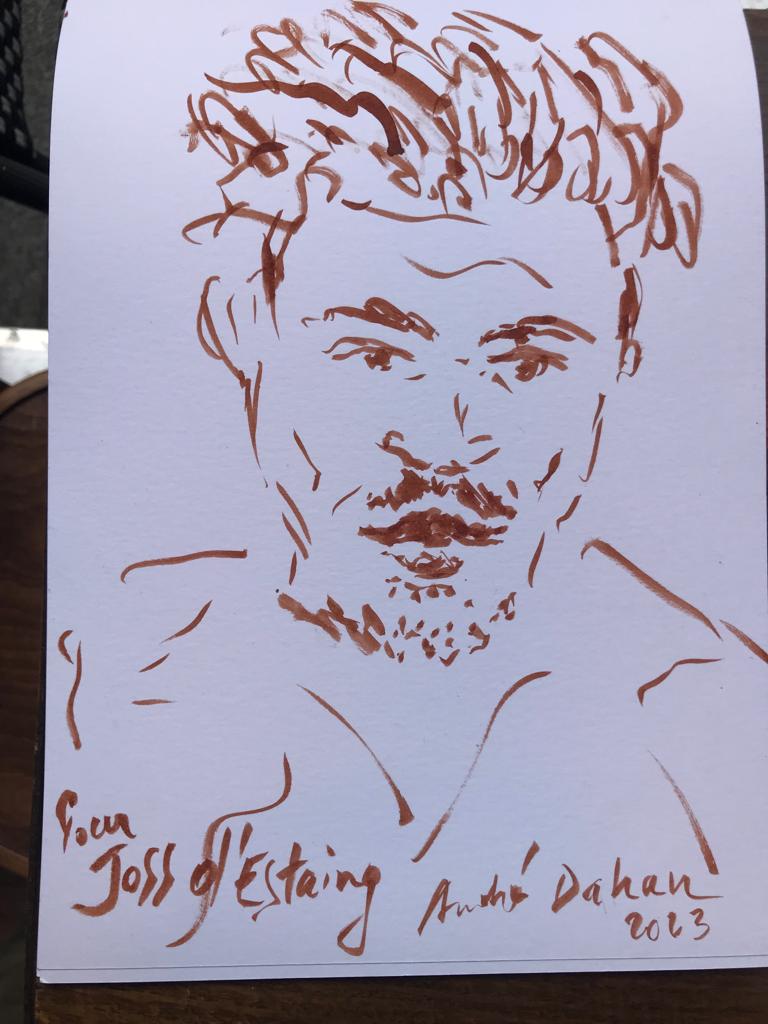 Pour
Joss d'Estaing
André Dahan
2023